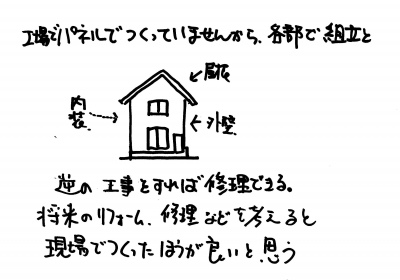 工場でパネルでつくっていませんから、各部で組立と
屋根
内装
外壁
逆の工事をすれば修理できる。
将来のリフォーム、修理などを考えると
現場でつくったほうが良いと思う